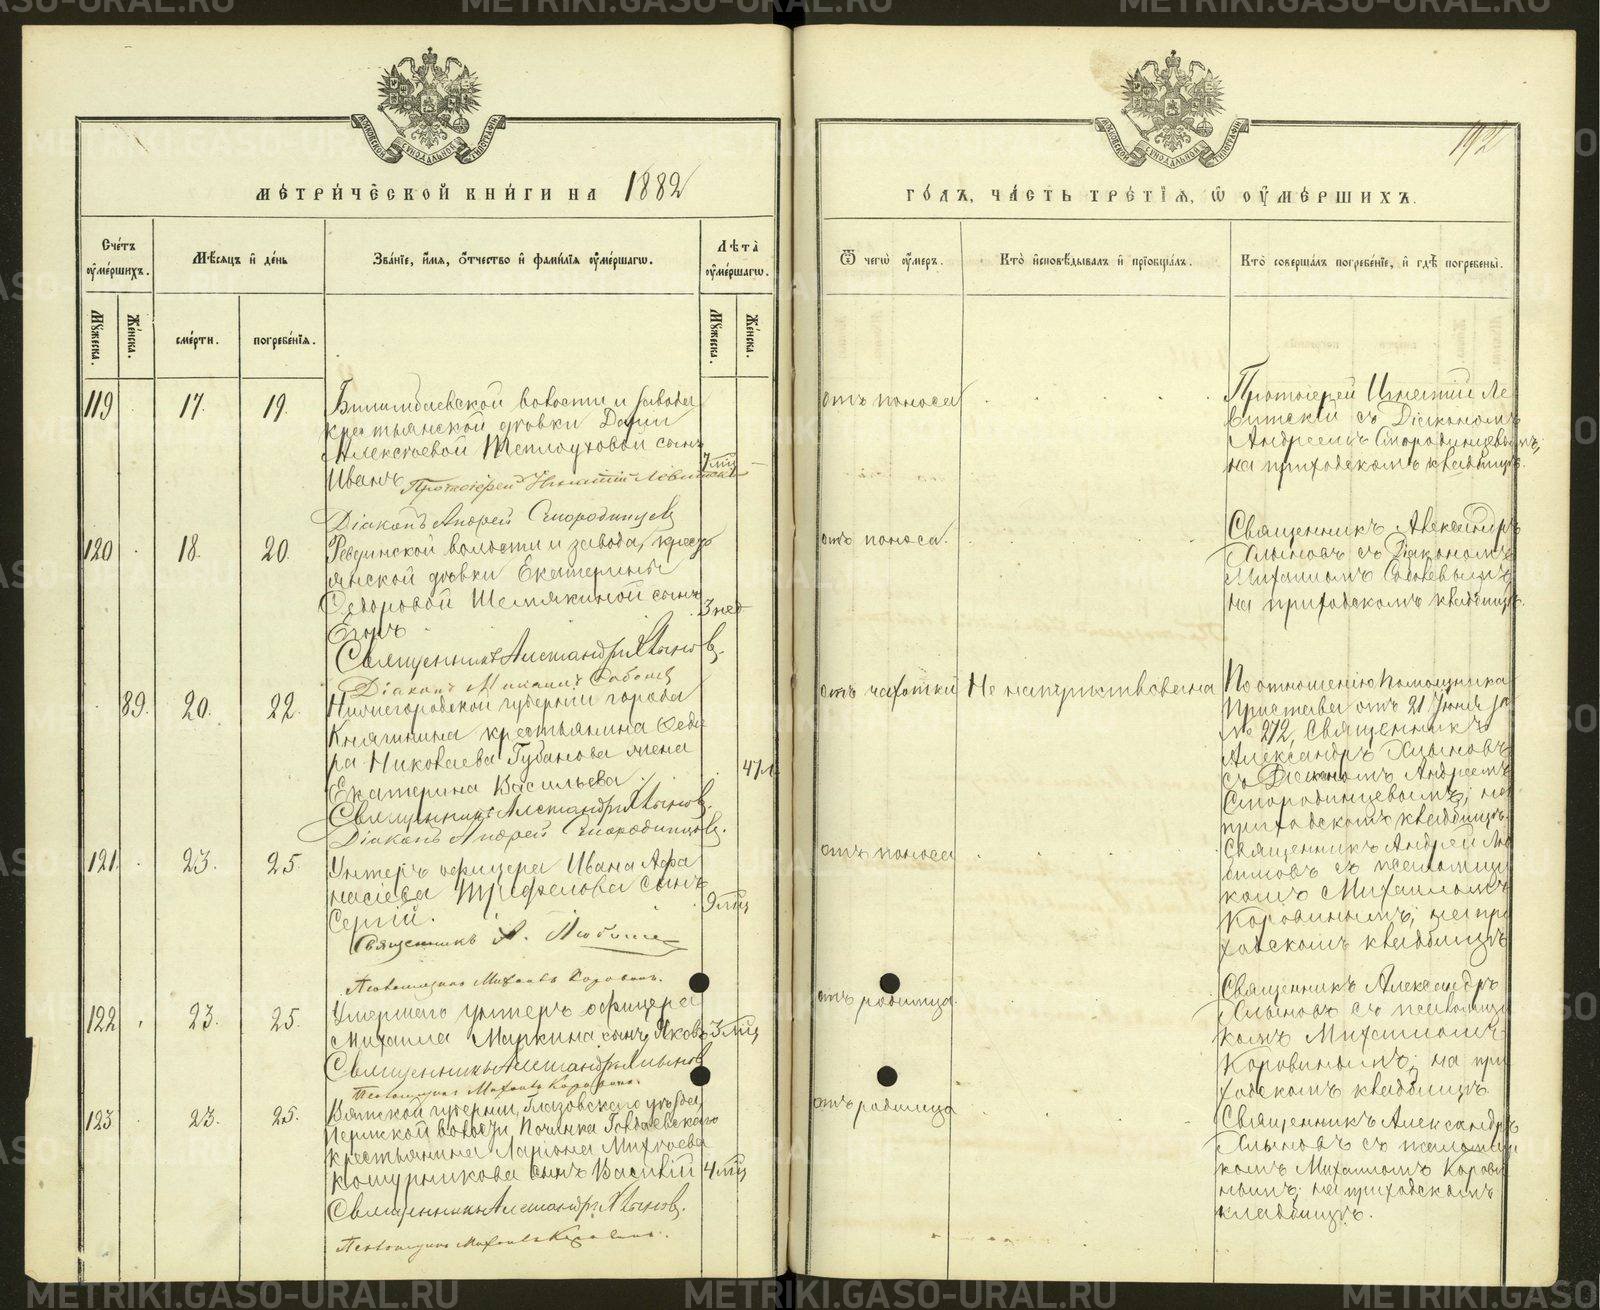 METRIKI.GASO-URAL.RU
МОСКОВСКОЙ СѴНОДАЛЬНОЙ ТИПОГРАФІИ
МЕТРИЧЕСКОЙ КНИГИ НА 1882
Счетъ оумершихъ.
Мѣсяцъ и день
Званіе, имя, отчество и фамилія оумершагѡ.
Лѣта оумершагѡ.
Мꙋжеска.
Женска.
смерти.
погребенія.
Мꙋжеска.
Женска.
119 17. 19.
Билимбаевской волости и завода
крестьянской дѣвки Дарьи
Алексѣевой Теплоуховой сынъ
Иванъ
7 мц
Протоіерей Игнатій Левитскій
Діаконъ Андрей Смородинцевъ
120 18. 20.
Ревдинской волости и завода, крестъ
янской дѣвки Екатерины
Ѳедоровой Шемякиной сынъ
Егоръ
3 нед
Священникъ Александръ Хлыновъ.
Діаконъ Михаилъ Соболевъ
89. 20. 22.
Нижегородской губерніи города
Княгинина крестьянина Ѳедо
ра Николаева Губанова жена
Екатерина Васильева
47 л
Священникъ Александръ Хлыновъ.
Діаконъ Андрей Смородинцевъ.
121. 23. 25.
Унтеръ офицера Ивана Афа
насіева сынъ
Сергій.
9 мц
Священникъ А. Любимовъ
Псаломщикъ Михаилъ Коровинъ.
122 23. 25.
Умершаго унтеръ офицера
Михаила Маркина сынъ Яковъ
3 мц
Священникъ Александръ Хлыновъ
Псаломщикъ Михаилъ Коровинъ.
123 23. 25.
Вятской губерніи, Глазовскаго уѣзда,
волости Починка
крестьянина Ларіона Михѣева
сынъ Василій
4 мц
Священникъ Александръ Хлыновъ.
Псаломщикъ Михаилъ Коровинъ.
192
МОСКОВСКОЙ СѴНОДАЛЬНОЙ ТИПОГРАФІИ
ГОДЪ, ЧАСТЬ ТРЕТІЯ, Ѡ ОУМЕРШИХЪ.
Ѿ чегѡ оумеръ.
Кто исповѣдывалъ и пріобщалъ.
Кто совершалъ погребеніе, и гдѣ погребены.
отъ поноса
Протоіерей Игнатій Ле
витскій съ Діакономъ
Андреемъ Смородинцевымъ,
на приходскомъ кладбищѣ.
отъ поноса.
Священникъ Александръ
Хлыновъ съ Діакономъ
Михаиломъ Соболевымъ
на приходскомъ кладбищѣ.
отъ чахотки
Не напутствована
По отношенію Помощника
Пристава отъ 21 Іюня за
№ 272, Священникъ
Александръ Хлыновъ
съ Діакономъ Андреемъ
Смородинцевымъ; на
приходскомъ кладбищѣ.
отъ поноса
Священникъ Андрей Лю
бимовъ съ псаломщи
комъ Михаиломъ
Коровинымъ; на при
ходскомъ кладбищѣ
отъ родимца.
Священникъ Александръ
Хлыновъ съ псаломщи
комъ Михаиломъ
Коровинымъ; на при
ходскомъ кладбищѣ
отъ родимца
Священникъ Александръ
Хлыновъ съ псаломщи
комъ Михаиломъ Корови
нымъ; на приходскомъ
кладбищѣ.